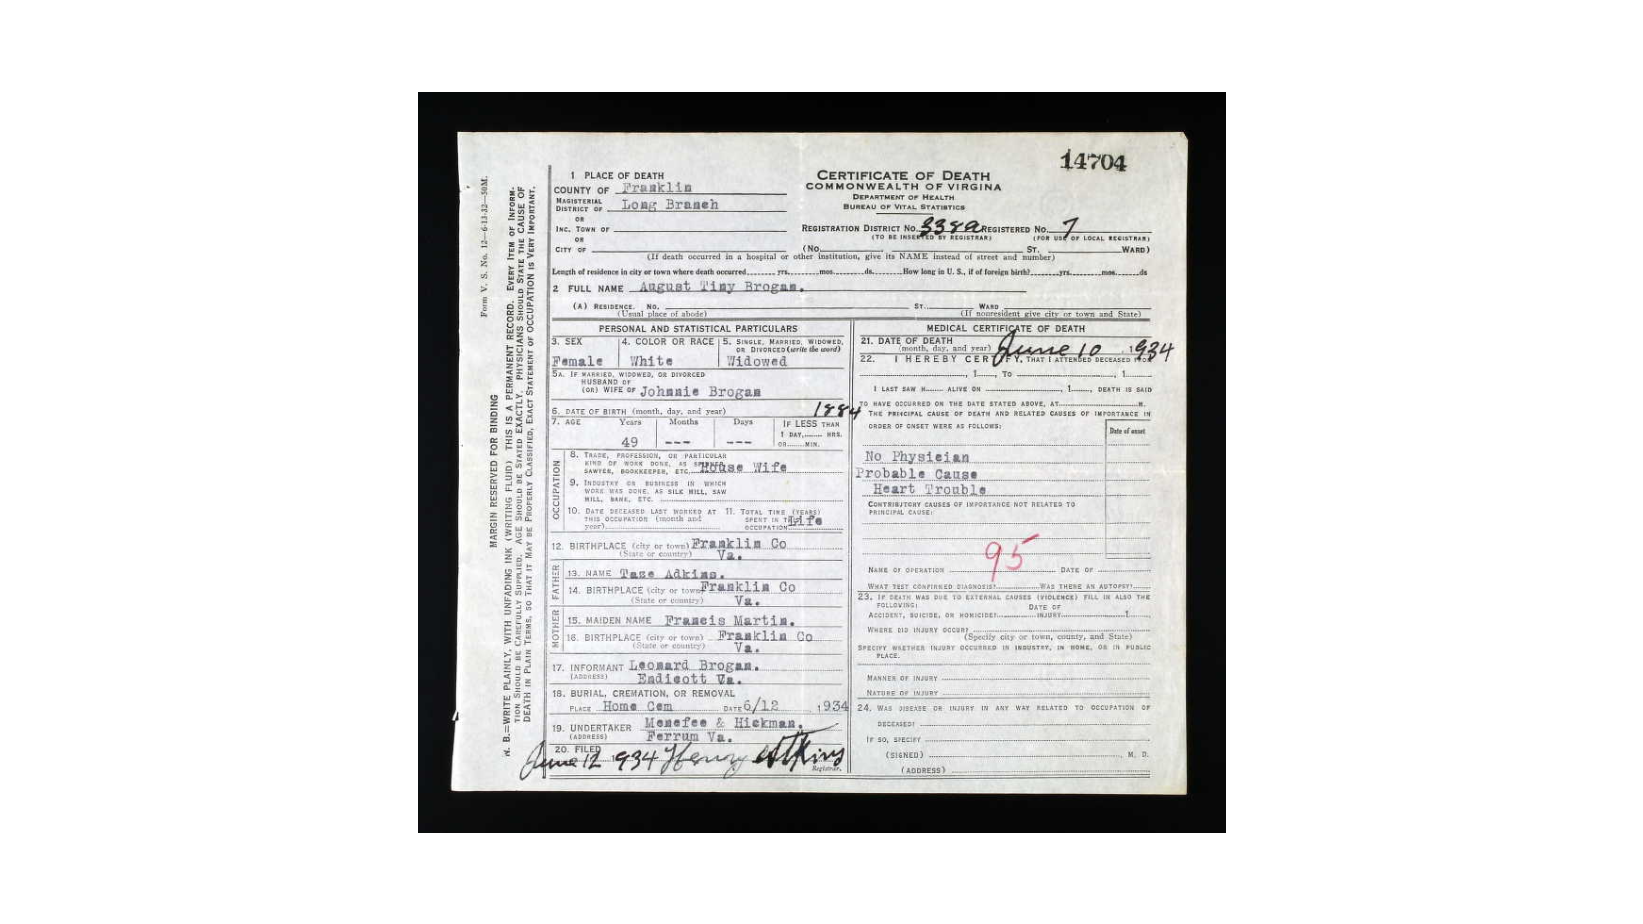 14704
1 PLACE OF DEATH
COUNTY OF Franklin
MAGISTERIAL DISTRICT OF Long Branch
OR
INC. TOWN OF
OR
CITY OF
CERTIFICATE OF DEATH
COMMONWEALTH OF VIRGINIA
DEPARTMENT OF HEALTH
BUREAU OF VITAL STATISTICS
REGISTRATION DISTRICT No. 338a REGISTERED No. 7
(TO BE INSERTED BY REGISTRAR) (FOR USE OF LOCAL REGISTRAR)
(No. ST. WARD)
(If death occurred in a hospital or other institution, give its NAME instead of street and number)
Length of residence in city or town where death occurred yrs. mos. ds. How long in U. S., if of foreign birth? yrs. mos. ds
2 FULL NAME August Tiny Brogan.
(A) RESIDENCE. No. ST. WARD
(Usual place of abode) (If nonresident give city or town and State)
PERSONAL AND STATISTICAL PARTICULARS
3. SEX 4. COLOR OR RACE 5. SINGLE, MARRIED, WIDOWED, OR DIVORCED (write the word)
Female White Widowed
5A. IF MARRIED, WIDOWED, OR DIVORCED
HUSBAND OF
(OR) WIFE OF Johnnie Brogan
6. DATE OF BIRTH (month, day, and year) 1884
7. AGE Years Months Days IF LESS THAN
1 DAY, HRS.
OR MIN.
49 --- ---
OCCUPATION
8. TRADE, PROFESSION, OR PARTICULAR
KIND OF WORK DONE, AS
SAWYER, BOOKKEEPER, ETC. House Wife
9. INDUSTRY OR BUSINESS IN WHICH
WORK WAS DONE, AS SILK MILL, SAW
MILL, BANK, ETC.
10. DATE DECEASED LAST WORKED AT THIS OCCUPATION (month and year)
11. TOTAL TIME (YEARS) SPENT IN THIS OCCUPATION Life
12. BIRTHPLACE (city or town) Franklin Co
(State or country) Va.
FATHER
13. NAME Tase Adkins.
14. BIRTHPLACE (city or town) Franklin Co
(State or country) Va.
MOTHER
15. MAIDEN NAME Francis Martin.
16. BIRTHPLACE (city or town) Franklin Co
(State or country) Va.
17. INFORMANT Leonard Brogan.
(ADDRESS) Endicott Va.
18. BURIAL, CREMATION, OR REMOVAL
PLACE Home Cem DATE 6/12 1934
19. UNDERTAKER Menefee & Hickman.
(ADDRESS) Ferrum Va.
20. FILED
June 12 1934 Henry Atkins
Registrar.
MEDICAL CERTIFICATE OF DEATH
21. DATE OF DEATH
(month, day, and year) June 10, 1934
22. I HEREBY CERTIFY, THAT I ATTENDED DECEASED FROM
, 1 , TO , 1
I LAST SAW H ALIVE ON , 1 , DEATH IS SAID
TO HAVE OCCURRED ON THE DATE STATED ABOVE, AT M.
THE PRINCIPAL CAUSE OF DEATH AND RELATED CAUSES OF IMPORTANCE IN
ORDER OF ONSET WERE AS FOLLOWS:
Date of onset
No Physician
Probable Cause
Heart Trouble
CONTRIBUTORY CAUSES OF IMPORTANCE NOT RELATED TO
PRINCIPAL CAUSE:
95
NAME OF OPERATION DATE OF
WHAT TEST CONFIRMED DIAGNOSIS? WAS THERE AN AUTOPSY?
23. IF DEATH WAS DUE TO EXTERNAL CAUSES (VIOLENCE) FILL IN ALSO THE
FOLLOWING:
ACCIDENT, SUICIDE, OR HOMICIDE? DATE OF INJURY 1
WHERE DID INJURY OCCUR?
(Specify city or town, county, and State)
SPECIFY WHETHER INJURY OCCURRED IN INDUSTRY, IN HOME, OR IN PUBLIC
PLACE.
MANNER OF INJURY
NATURE OF INJURY
24. WAS DISEASE OR INJURY IN ANY WAY RELATED TO OCCUPATION OF
DECEASED?
IF SO, SPECIFY
(SIGNED) M. D.
(ADDRESS)
Form V. S. No. 12—6-13-32—50M.
MARGIN RESERVED FOR BINDING
N. B.—WRITE PLAINLY, WITH UNFADING INK (WRITING FLUID) THIS IS A PERMANENT RECORD. EVERY ITEM OF INFORM-
TION SHOULD BE CAREFULLY SUPPLIED. AGE SHOULD BE STATED EXACTLY. PHYSICIANS SHOULD STATE THE CAUSE OF
DEATH IN PLAIN TERMS, SO THAT IT MAY BE PROPERLY CLASSIFIED. EXACT STATEMENT OF OCCUPATION IS VERY IMPORTANT.